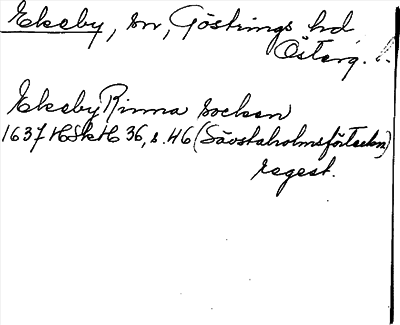 Ekeby, sn, Göstrings hd
Österg. l.
Ekeby Rinna socken
1637 HSkH 36, s. 46 (Säbstaholmsförteckn)
regest.